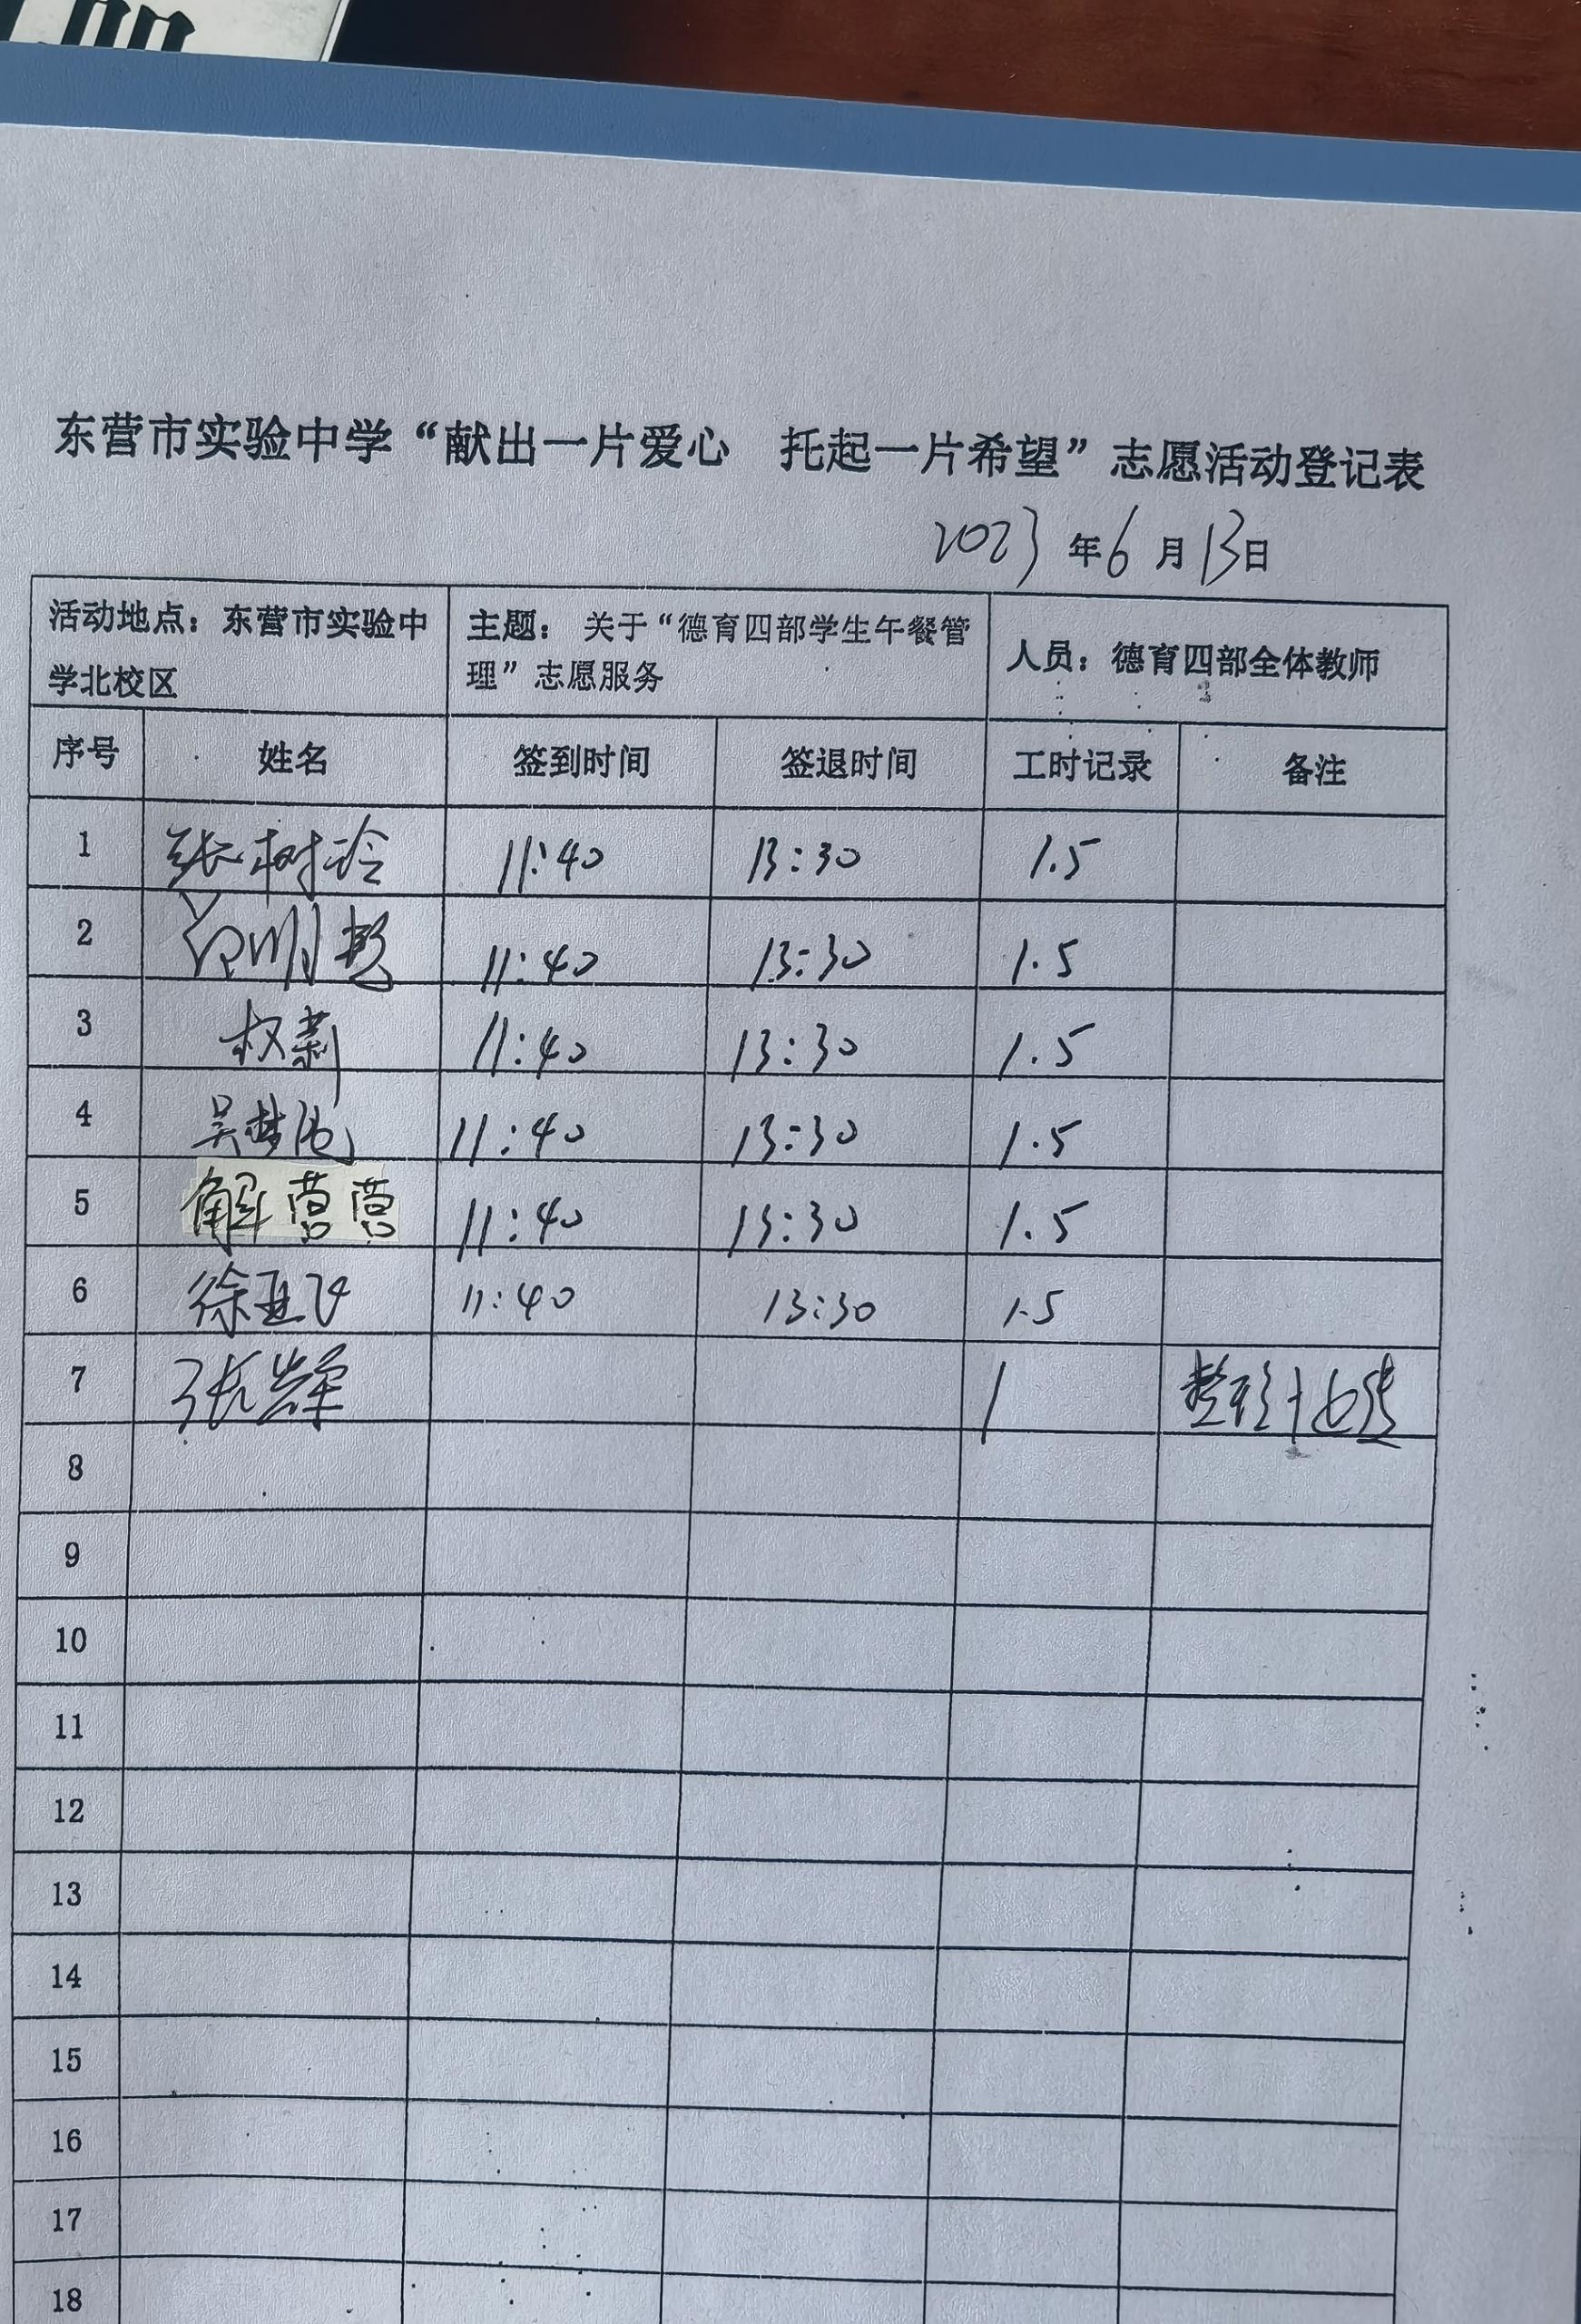 东营市实验中学“献出一片爱心 托起一片希望”志愿活动登记表
2023年6月13日
活动地点：东营市实验中学北校区 主题：关于“德育四部学生午餐管理”志愿服务 人员：德育四部全体教师
序号 姓名 签到时间 签退时间 工时记录 备注
1 张树玲 11:40 13:30 1.5
2 11:40 13:30 1.5
3 权莉 11:40 13:30 1.5
4 吴梦 11:40 13:30 1.5
5 解营营 11:40 13:30 1.5
6 徐亚飞 11:40 13:30 1.5
7 张 1
8
9
10
11
12
13
14
15
16
17
18